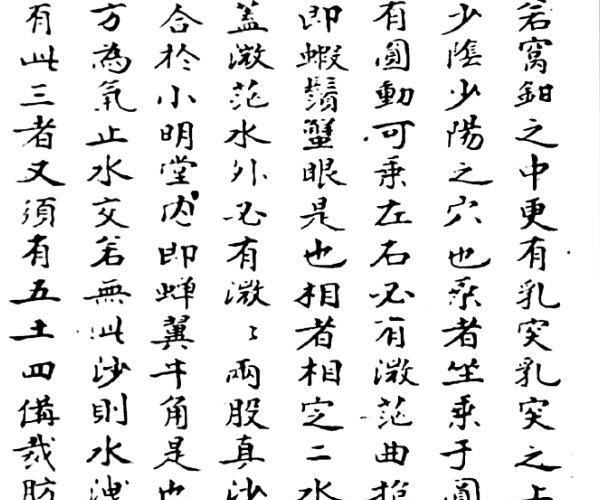 若窩鉗之中更有乳突乳突之上
少陰少陽之穴也乘者坐乘于圓
有圓動可乘左右必有微茫曲抱
即蝦鬚蟹眼是也相者相定二水
蓋微茫水外必有微〻兩股真沙
合於小明堂內即蟬翼牛角是也
方為氣止水交若無此沙則水洩
有此三者又須有五土四備裁肪